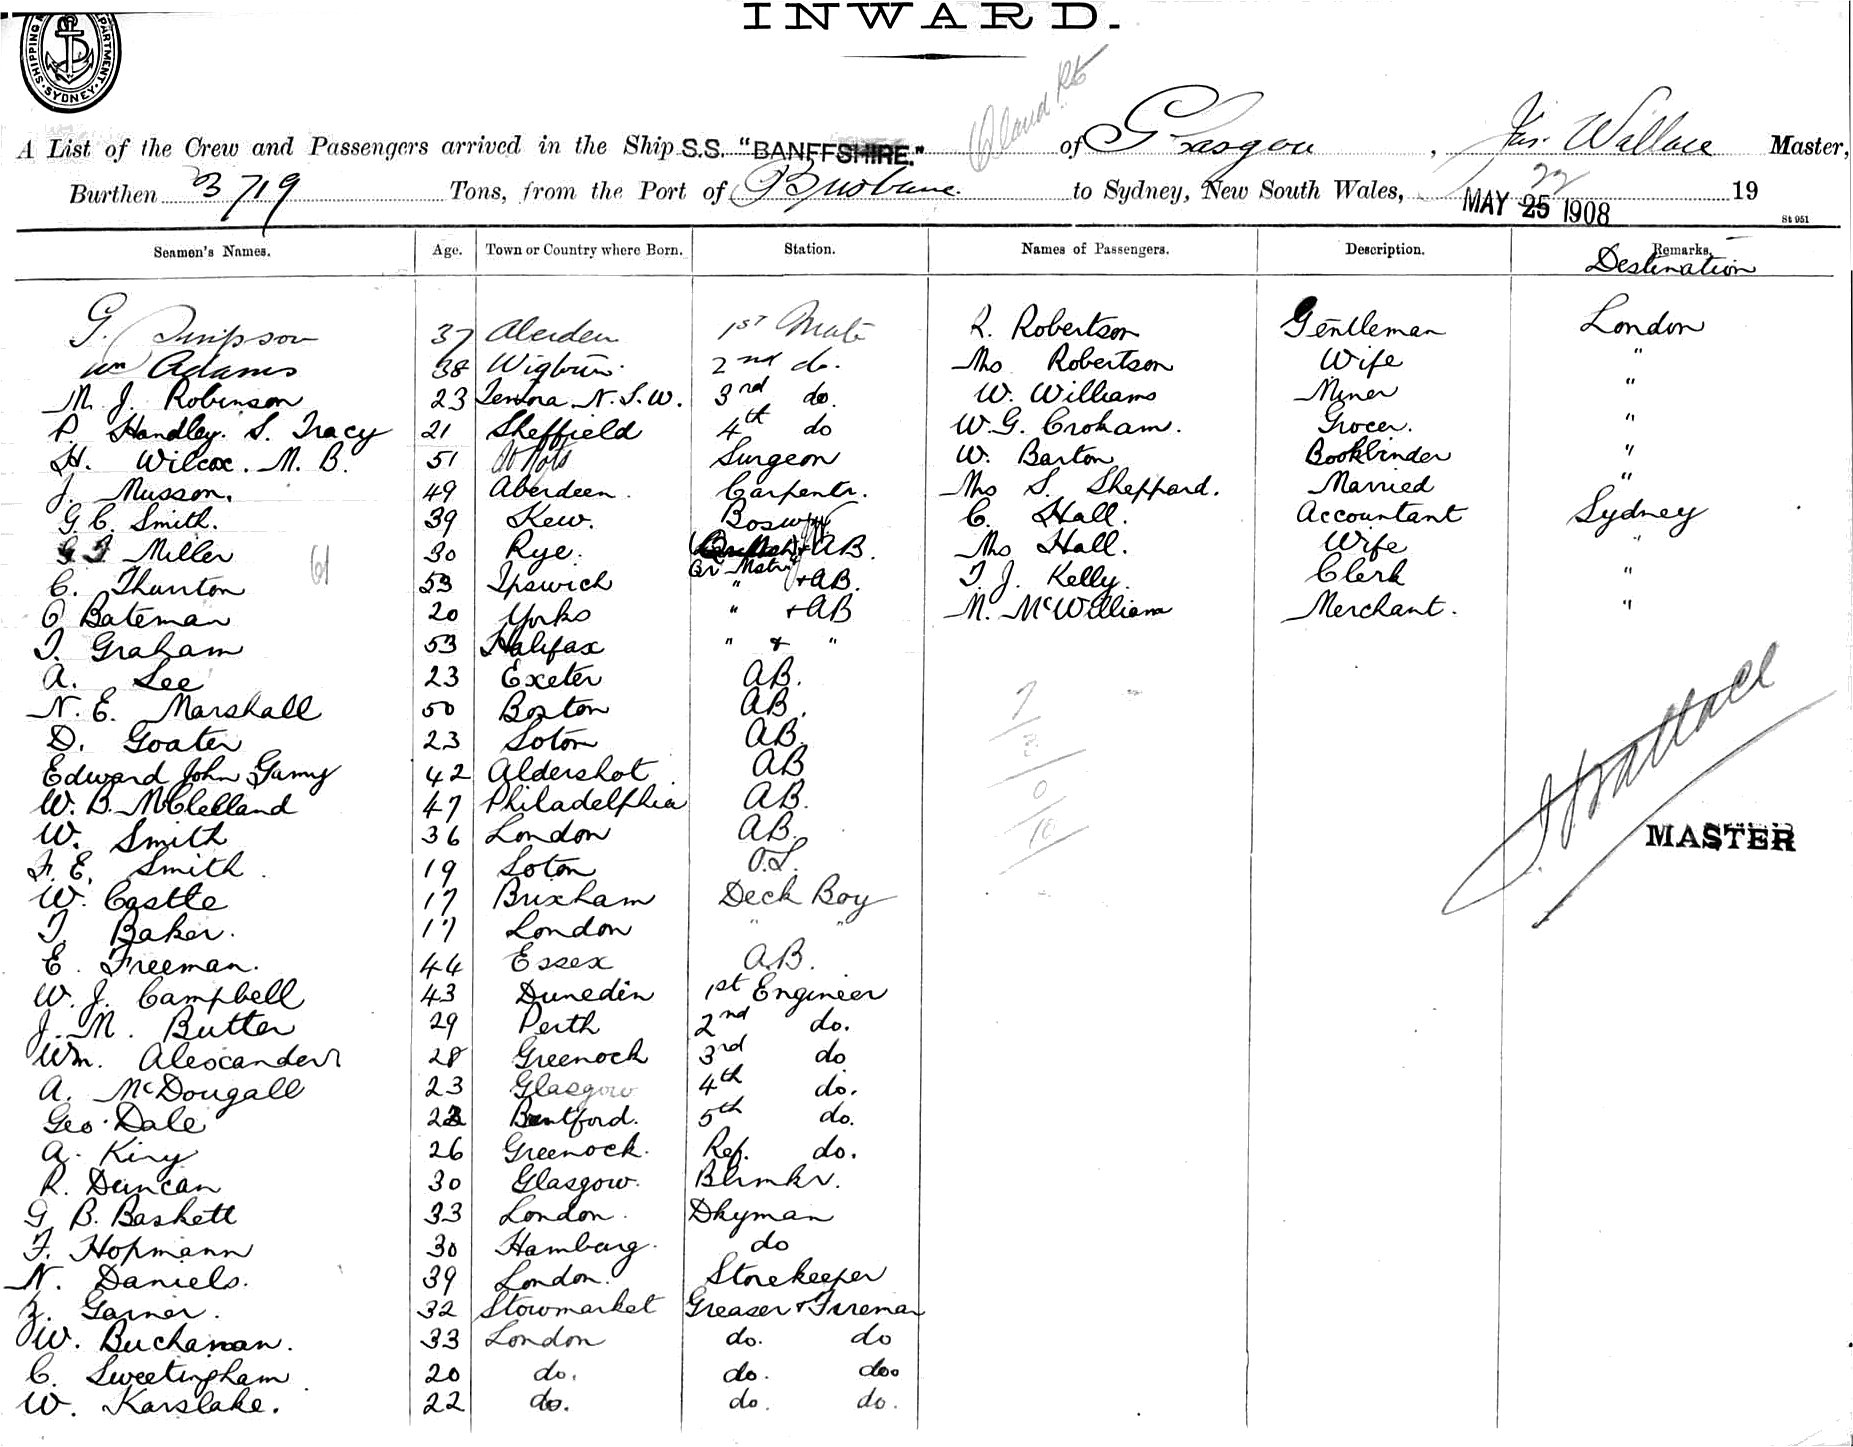 INWARD.
SHIPPING DEPARTMENT. SYDNEY.
A List of the Crew and Passengers arrived in the Ship S.S. "BANFFSHIRE." of Glasgow, Jas. Wallace Master,
Burthen 3719 Tons, from the Port of Brisbane to Sydney, New South Wales, 22 MAY 25 1908 19
St 951
Seamen's Names. Age. Town or Country where Born. Station. Names of Passengers. Description. Remarks.
Destination
G. Simpson 37 Aberdeen 1st Mate R. Robertson Gentleman London
Wm Adams 38 Wigtown 2nd do. Mrs Robertson Wife "
M. J. Robinson 23 Temora N.S.W. 3rd do. W. Williams Miner "
P. Handley. S. Tracy 21 Sheffield 4th do W. G. Croham. Grocer. "
H. Wilcox. M. B. 51 Surgeon W. Barton Bookbinder "
J. Musson. 49 Aberdeen. Carpentr. Mrs S. Sheppard. Married "
G. C. Smith. 39 Kew. Bosw C. Hall. Accountant Sydney
Miller 30 Rye. + AB. Mrs Hall. Wife "
C. Thurston 53 Ipswich Qr Mstr " + AB. T. J. Kelly. Clerk "
C Bateman 20 Yorks " + AB M. McWilliam Merchant. "
T. Graham 53 Halifax " & "
A. Lee 23 Exeter AB.
N. E. Marshall 50 Boston AB.
D. Goater 23 Soton AB.
Edward John 42 Aldershot AB
W. B. McClelland 47 Philadelphia AB.
W. Smith 36 London AB.
F. E. Smith. 19 Soton O.S.
W. Castle 17 Brixham Deck Boy
T Baker. 17 London " "
E. Freeman. 44 Essex A.B.
W. J. Campbell 43 Dunedin 1st Engineer
J. M. Butter 29 Perth 2nd do.
Wm. Alexander 28 Greenock 3rd do
A. McDougall 23 Glasgow 4th do.
Geo. Dale 22 Brentford. 5th do.
A. King 26 Greenock. Ref. do.
R. Duncan 30 Glasgow. Blrmkr.
G B. Baskett 33 London. Dkyman
F. Hopmann 30 Hamburg. do
N. Daniels. 39 London. Storekeeper
Z. Garner. 32 Stowmarket Greaser & Fireman
W. Buchanan. 33 London do. do
C. Sweetingham 20 do. do. do.
W. Karslake. 22 do. do. do.
J Wallace
MASTER